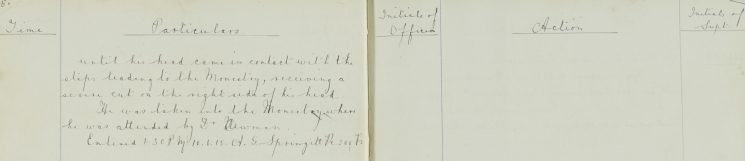 Time
Particulars
Initials of Officer
Action
Initials of Supt.
until his head came in contact with the
steps leading to the Monastry, receiving a
severe cut on the right side of his head.
He was taken into the Monastry where
he was attended by Dr Newman.
Entered 1.30 PM A. G. Springett Pc